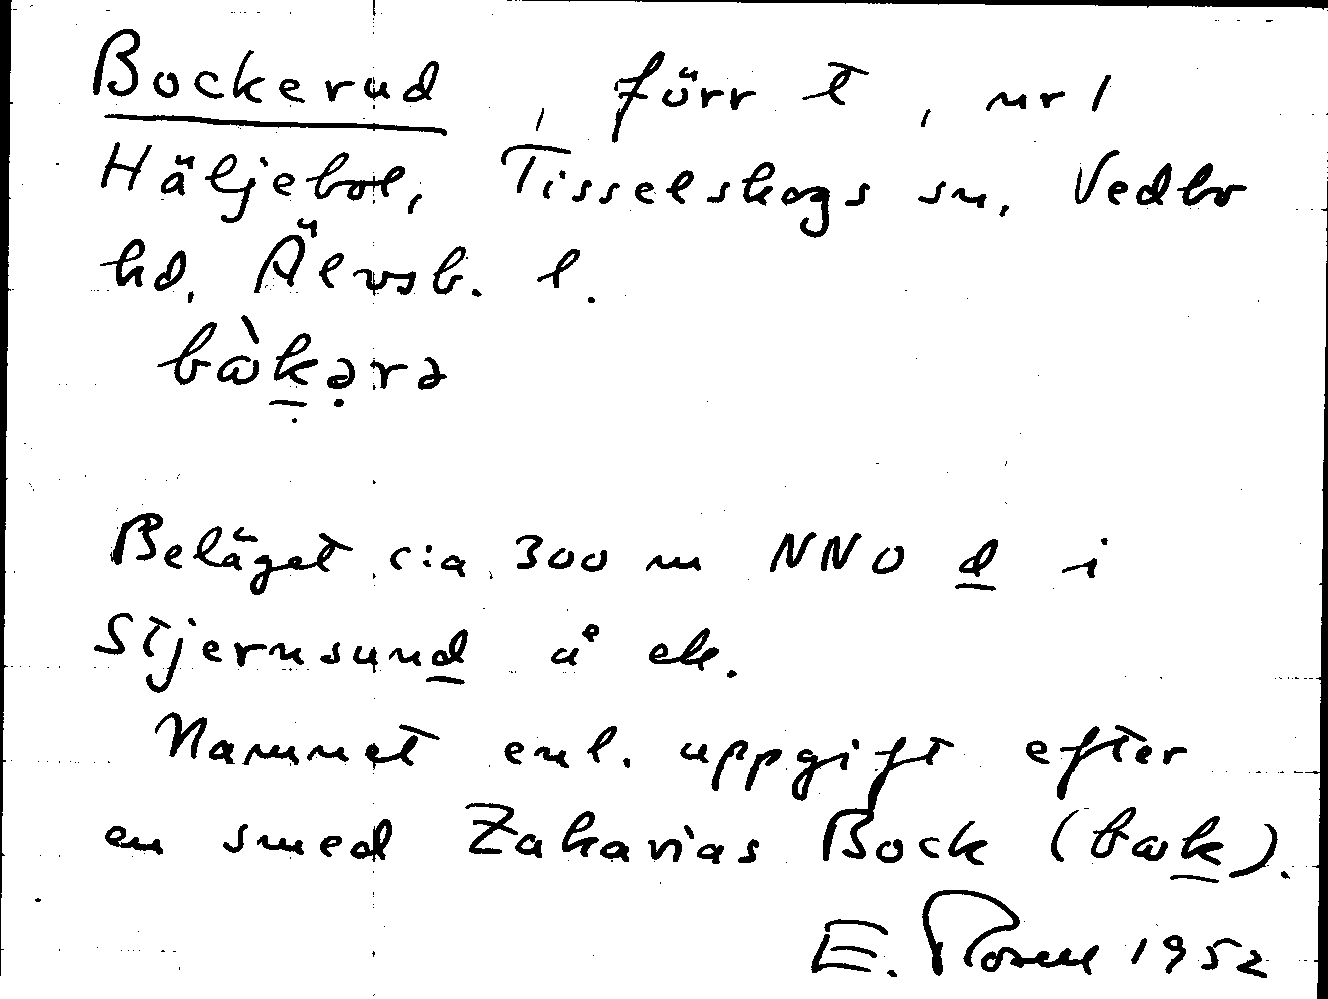 Bockerud, förr t, nr 1
Häljebol, Tisselskogs sn, Vedbo
hd, Älvsb. l.
bὼk̲ə̣rə
Beläget c:a 300 m NNO d̲ i
Stjernsund̲ å ek.
Namnet enl. uppgift efter
en smed Zakarias Bock (bωk̲).
E. Rosell 1952